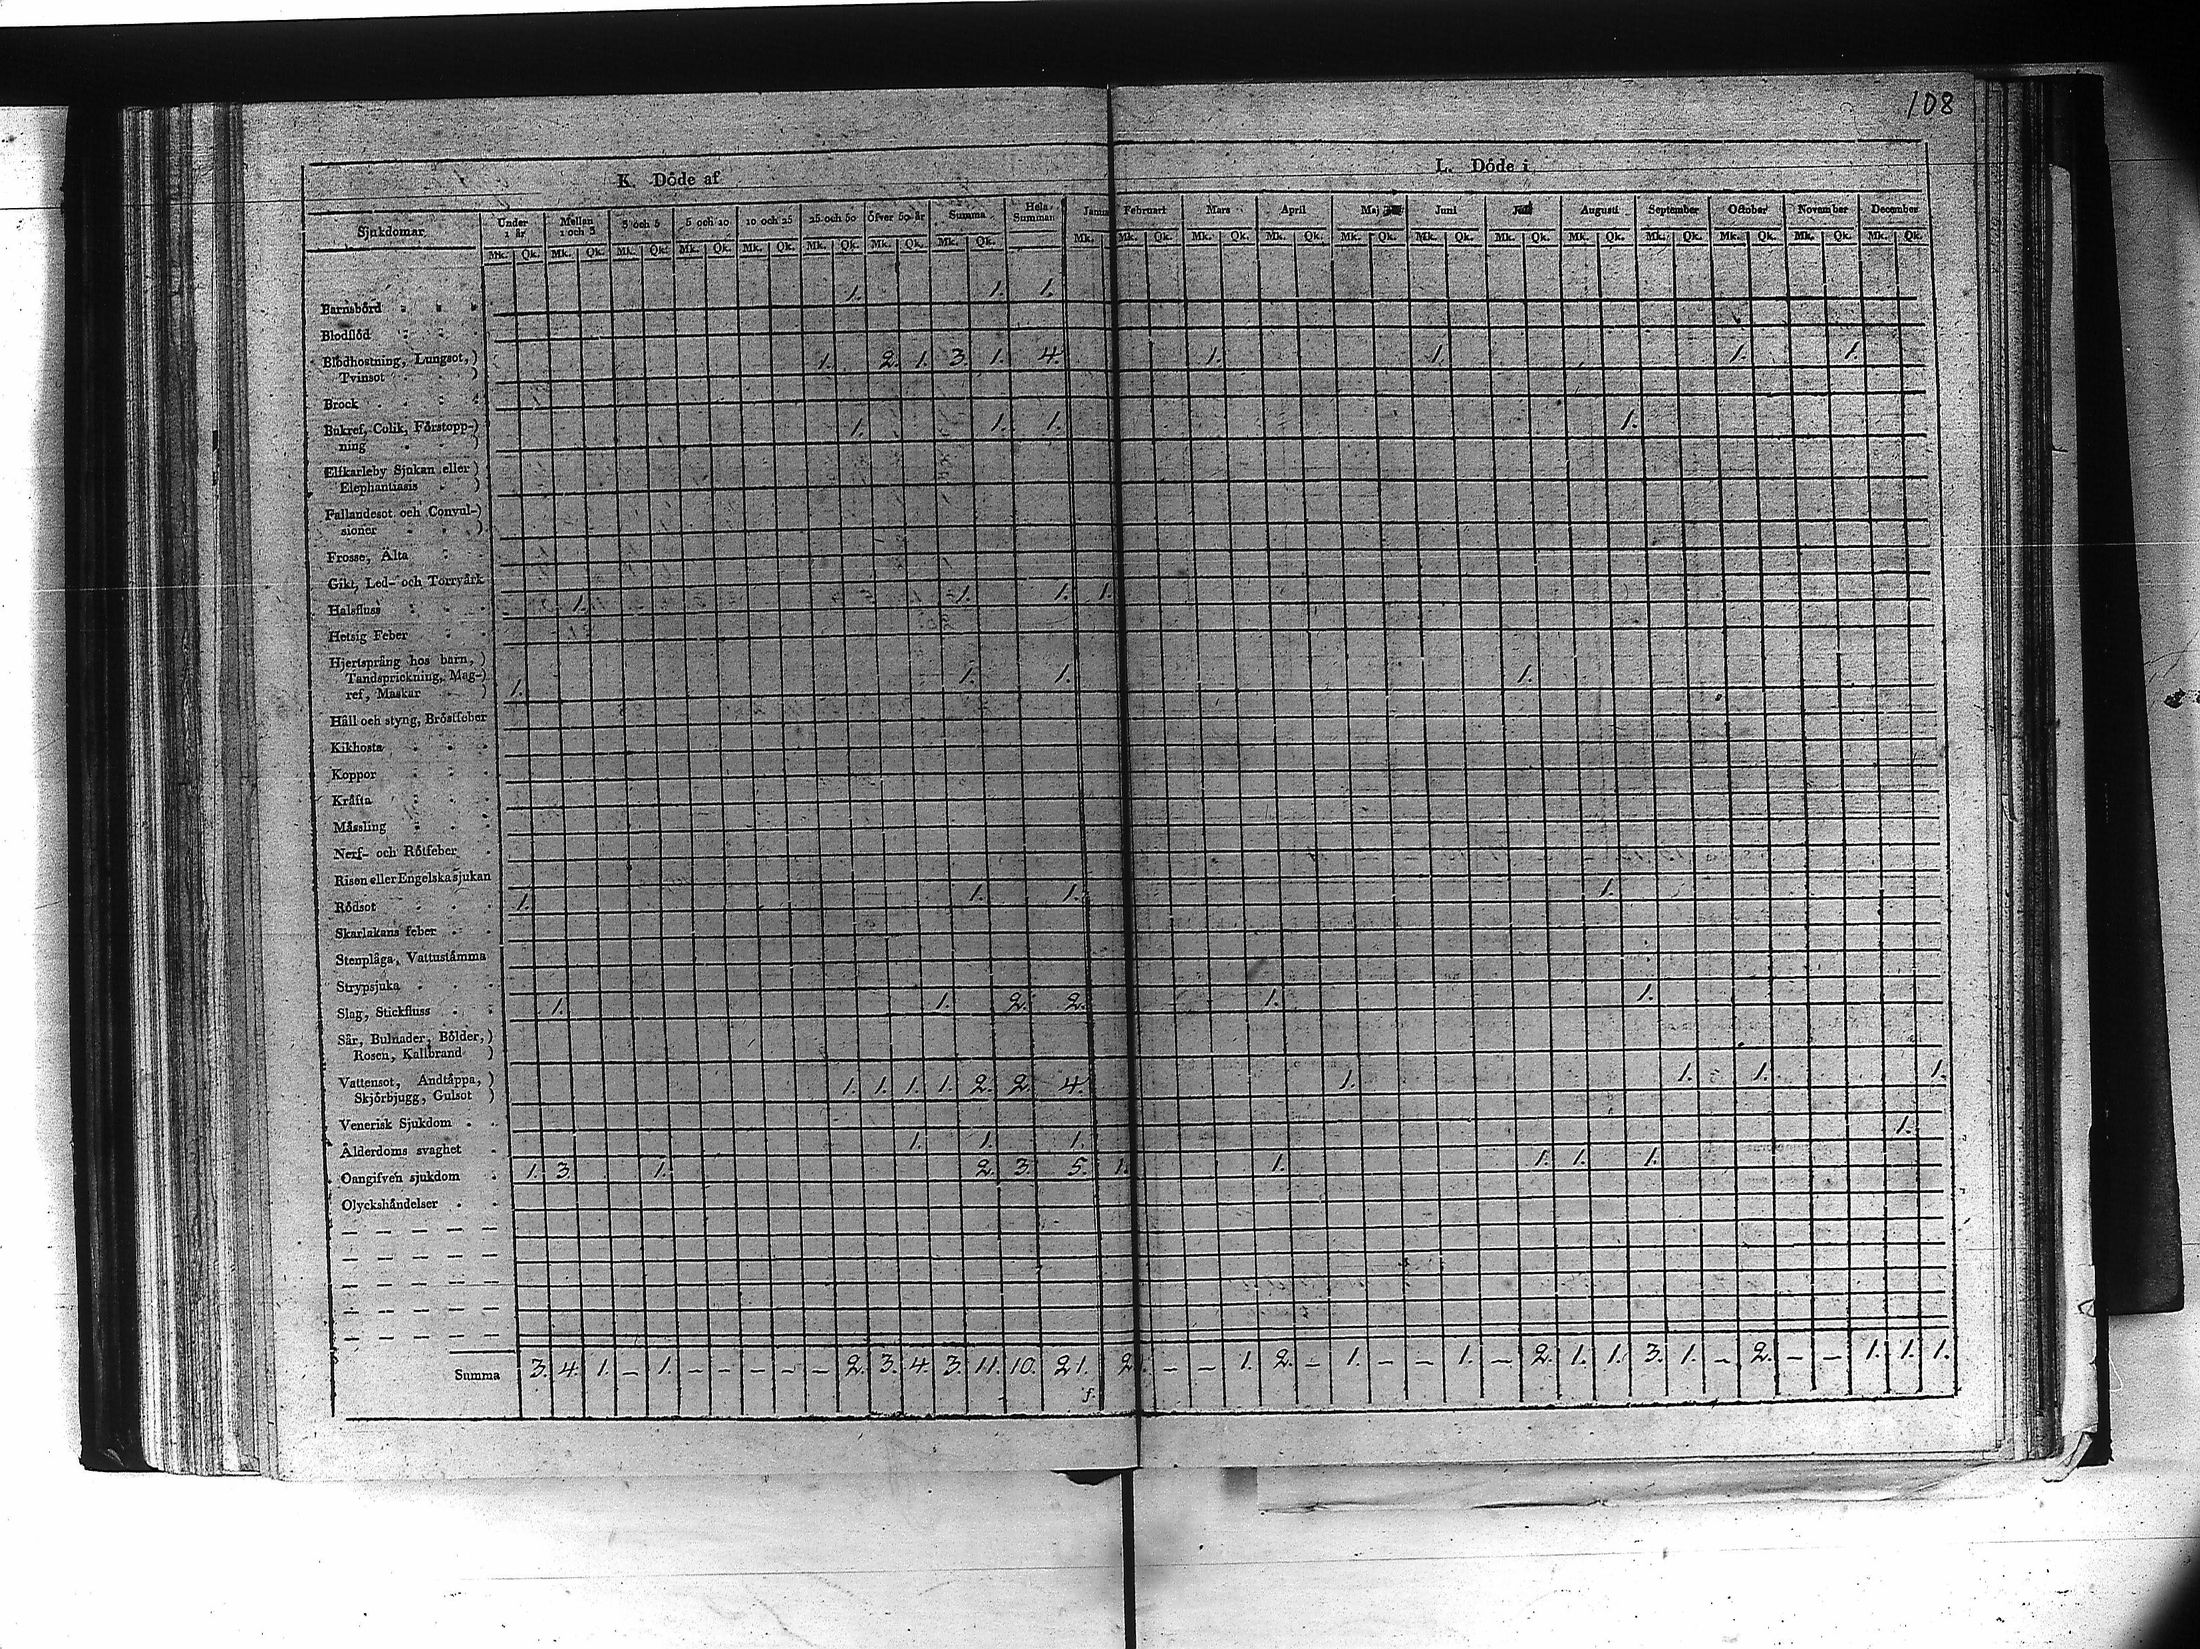 108
K. Döde af
L. Döde i
Sjukdomar Under 1 år Mellan 1 och 3 3 och 5 5 och 10 10 och 25 25 och 50 öfver 50 år Summa Hela Summan Februari Mars April Maj Juni Augusti September October November December
Mk. Qk. Mk. Qk. Mk. Qk. Mk. Qk. Mk. Qk. Mk. Qk. Mk. Qk. Mk. Qk. Mk. Mk. Qk. Mk. Qk. Mk. Qk. Mk. Qk. Mk. Qk. Mk. Qk. Mk. Qk. Mk. Qk. Mk. Qk. Mk. Qk. Mk. Qk.
Barnsbörd 1. 1. 1.
Blodflöd
Blodhostning, Lungsot,) 1. 2. 1. 3. 1. 4. 1. 1. 1. 1.
Tvinsot )
Brock
Bukref, Colik, Förstopp-) 1. 1. 1. 1.
ning )
Elfkarleby Sjukan eller )
Elephantiasis )
Fallandesot och Convul-)
sioner )
Frosse, Älta
Gikt, Led- och Torrvärk
Halsfluss 1. 1. 1. 1.
Hetsig Feber
Hjertsprång hos barn, )
Tandsprickning, Mag-) 1. 1. 1.
ref, Maskar ) 1.
Håll och styng, Bröstfeber
Kikhosta
Koppor
Kräfta
Mässling
Nerf- och Rötfeber
Risen eller Engelska sjukan
Rödsot 1. 1. 1. 1.
Skarlakans feber
Stenplåga, Vattustämma
Strypsjuka
Slag, Stickfluss 1. 1. 2. 2. 1. 1.
Sår, Bulnader, Bölder,)
Rosen, Kallbrand )
Vattensot, Andtäppa, ) 1. 1. 1. 1. 2. 2. 4. 1. 1. 1. 1.
Skjörbjugg, Gulsot )
Venerisk Sjukdom
Ålderdoms svaghet 1. 1. 1. 1.
Oangifven sjukdom 1. 3. 1. 2. 3. 5. 1. 1. 1. 1. 1.
Olyckshändelser
Summa 3. 4. 1. – 1. – – – – – 2. 3. 4. 3. 11. 10. 21. 2. – – 1. 2. – 1. – – 1. – 2. 1. 1. 3. 1. – 2. – – 1. 1. 1.